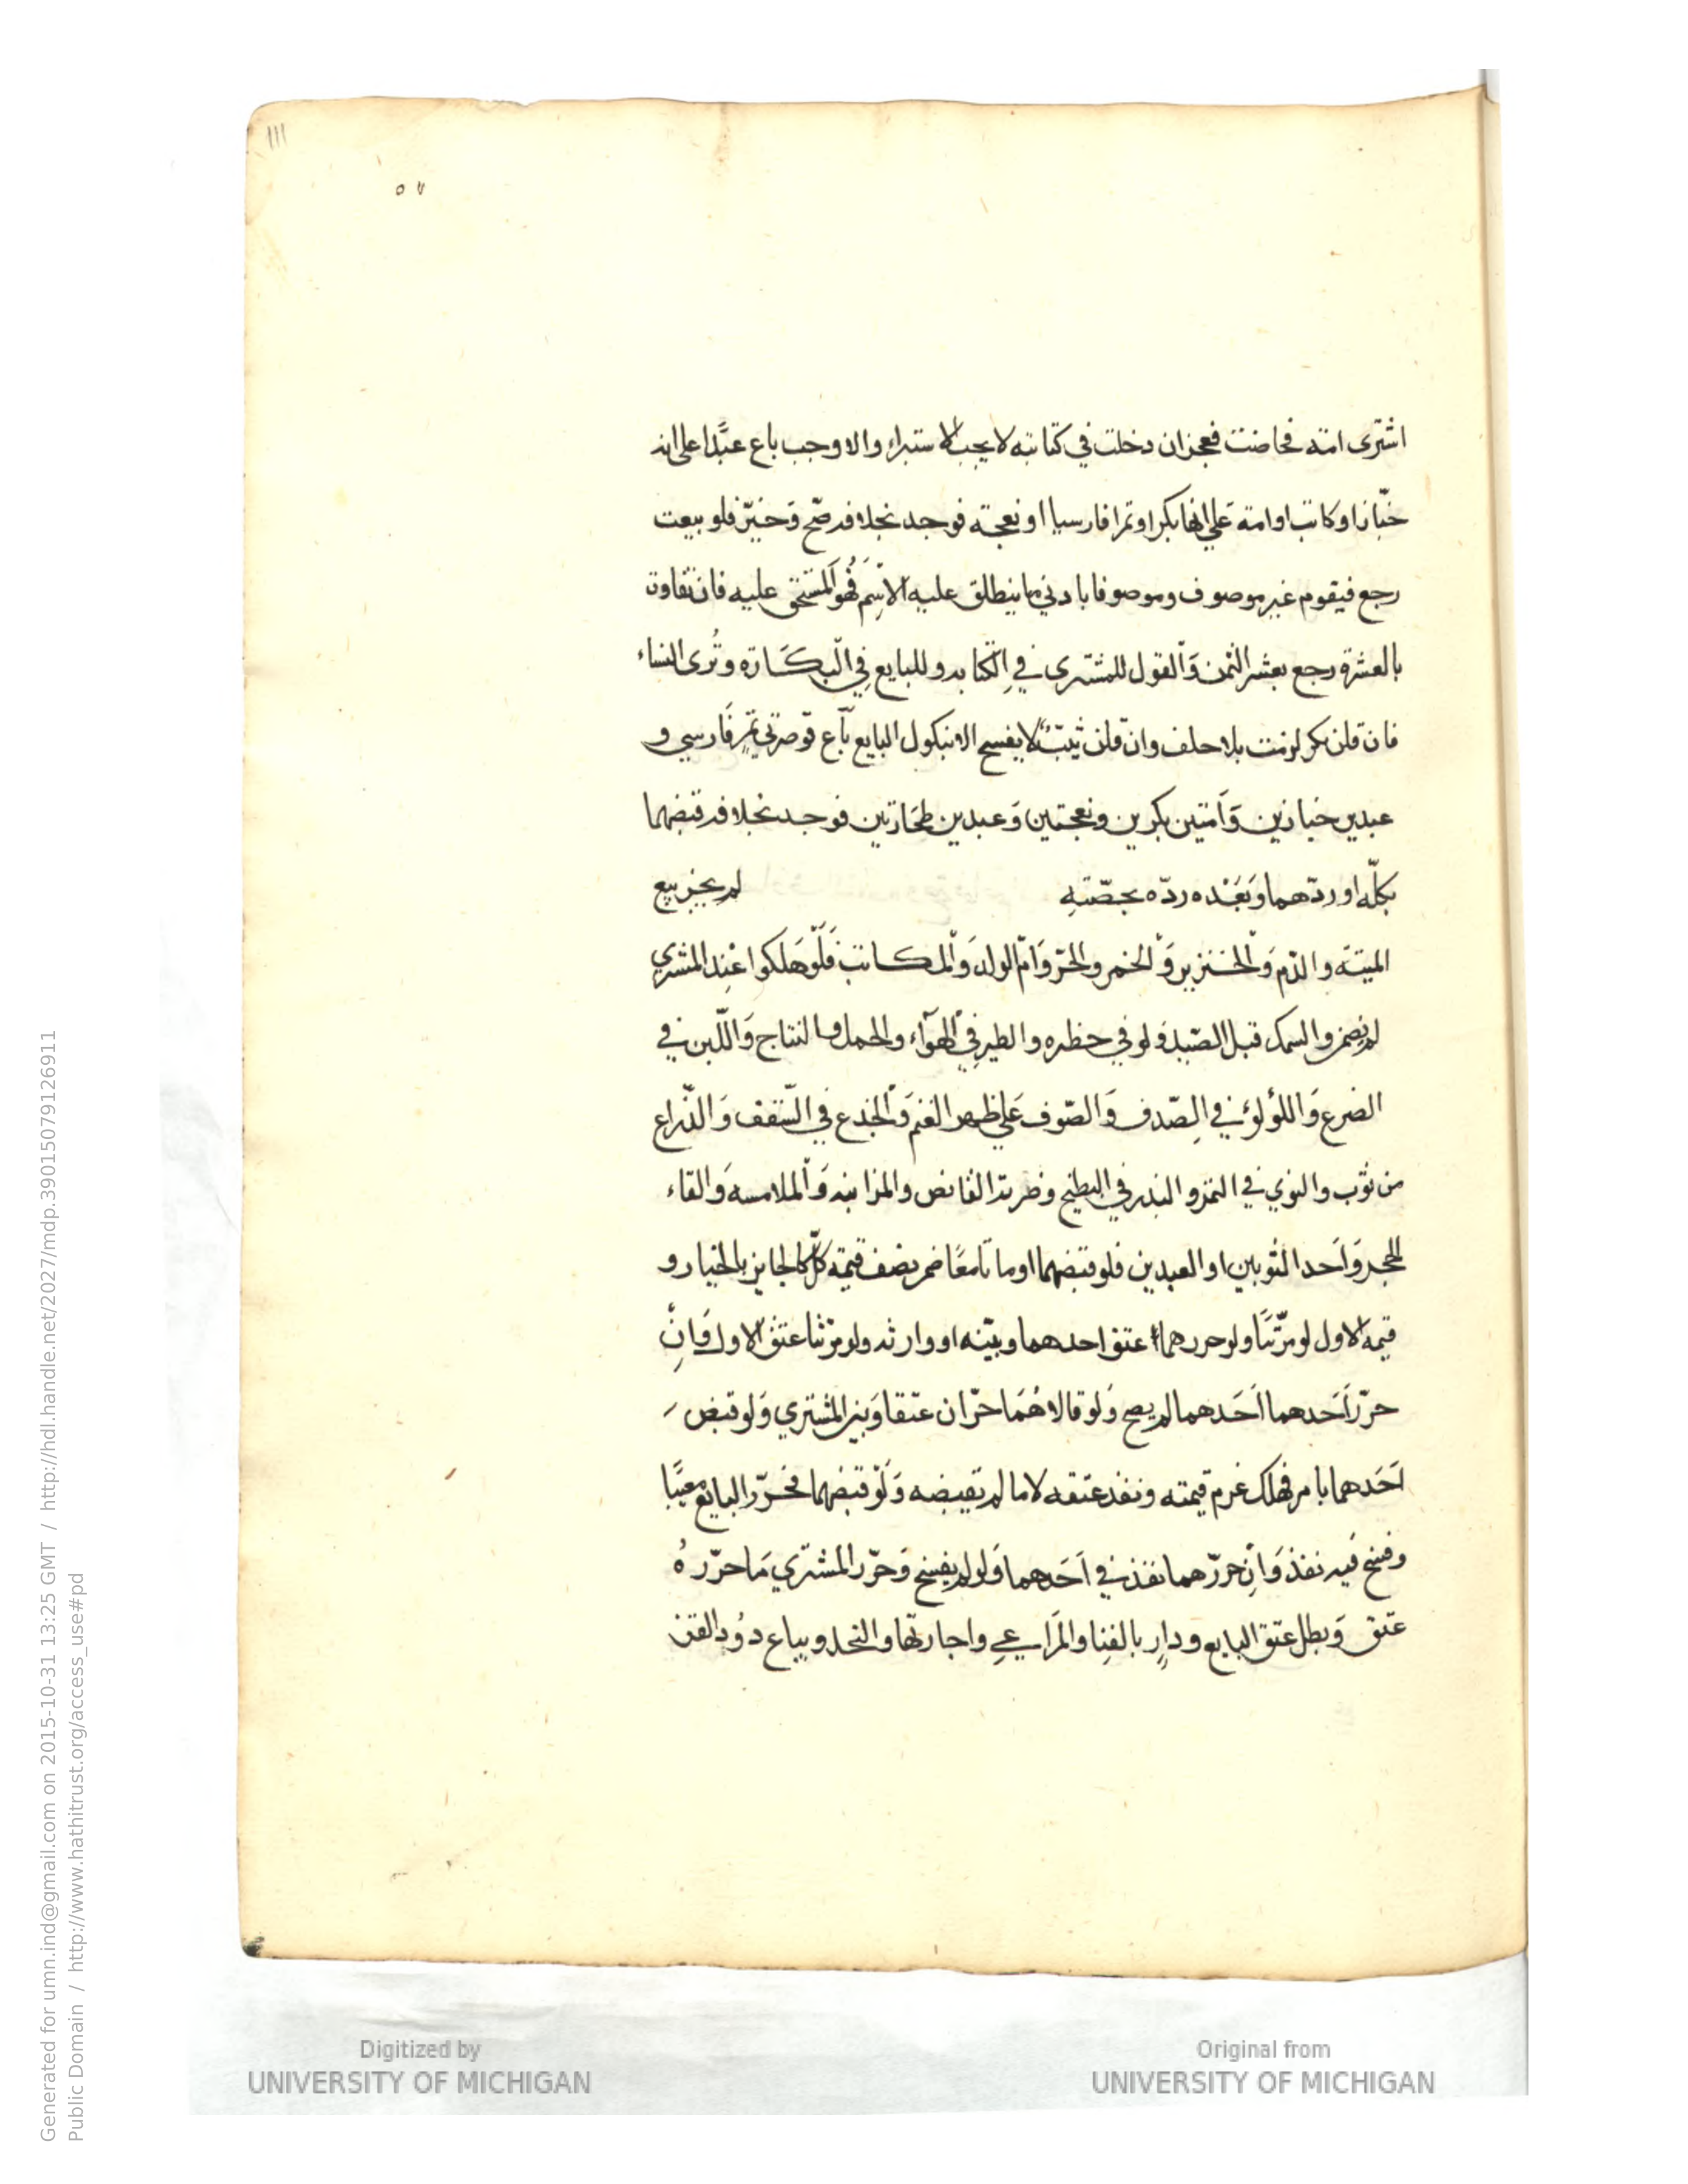 ١١١
٥٧
اشترى امته فحاضت فعجز ان دخلت في كتابته لا يجب الاستبراء والا وجب باع عبدا على انه
خبازا او كاتب او امة على انها بكر او تمرا فارسيا او نعجة فوجد بخلافه صح وخير فلو بيعت
رجع فيقوم غير موصوف وموصوفا بادني ما ينطلق عليه الاسم فهو المستحق عليه فان تفاوت
بالعشرة رجع بعشر الثمن والقول للمشترى في الكتابه وللبايع في البكارة وترى النساء
فان قلن بكر لزمت بلا حلف وان قلن ثيب لا يفسخ الا بنكول البايع باع قوصرتي تمر فارسي و
عبدين خبازين وامتين بكرين ونعجتين وعبدين فوجد بخلافه قبضهما
بكله او ردهما وبعده رده بحصته لم يجز بيع
الميتة والدم والخنزير والخمر والحر وام الولد والمكاتب فلو هلكوا عند المشتري
لم يضمن والسمك قبل الصيد ولو في حظره والطير في الهواء والحمل والنتاج واللبن في
الضرع واللؤلؤ في الصدف والصوف على ظهر الغنم والجذع في السقف والذراع
من ثوب والنوي في التمر والبذر في البطيخ وضربة القانص والمزابنه والملامسه والقاء
الحجر واحد الثوبين او العبدين فلو قبضهما او ماتا معا ضمن نصف قيمة كل كالجايز بالخيار و
قيمه الاول لو مرتبا ولو حررهما عتق احدهما وبينه او وارثه ولو مرتبا عتق الاول وان
حرر احدهما احدهما لم يصح ولو قالا هما حران عتقا وبين المشتري ولو قبض
احدهما بامر فهلك غرم قيمته ونفذ عتقه لا ما لم يقبضه ولو قبضهما فحرر البايع معينا
وفسخ فيه نفذ وان حررهما نفذ في احدهما ولو لم يفسخ وحرر المشتري ما حرره
عتق وبطل عتق البايع ودار بالفنا والمراعي واجارتها والنحل ويباع دود القز
Generated for umn.ind@gmail.com on 2015-10-31 13:25 GMT / http://hdl.handle.net/2027/mdp.39015079126911
Public Domain / http://www.hathitrust.org/access_use#pd
Digitized by
UNIVERSITY OF MICHIGAN
Original from
UNIVERSITY OF MICHIGAN